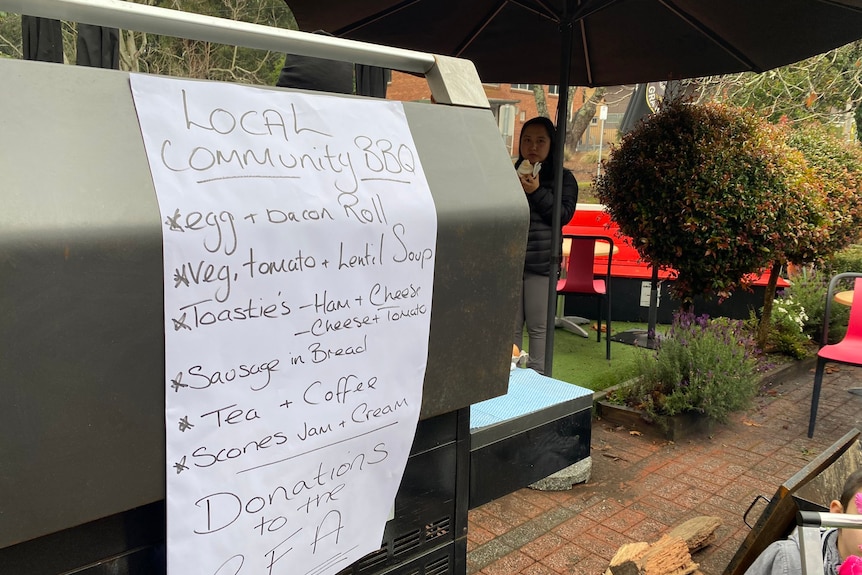 LOCAL
Community BBQ
* egg + Bacon Roll
* Veg, tomato + Lentil Soup
* Toastie's - Ham + Cheese
- Cheese + Tomato
* Sausage in Bread
* Tea + Coffee
* Scones Jam + Cream
Donations
to the
RFA